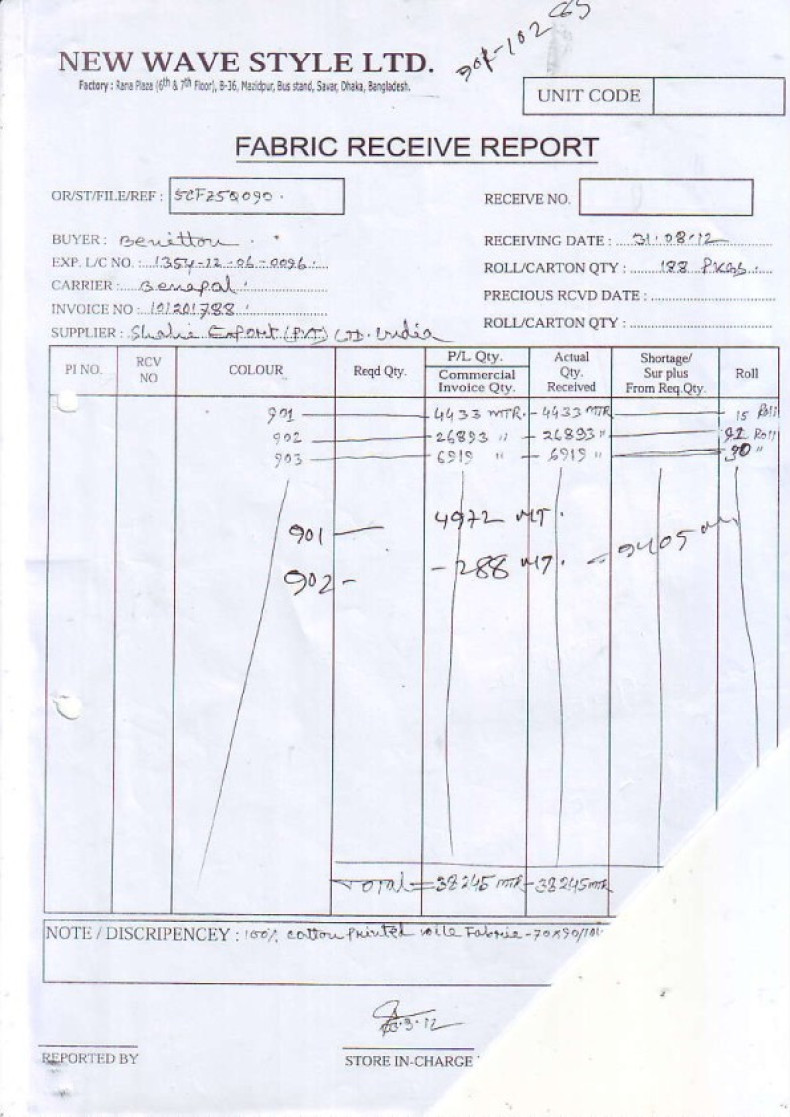 NEW WAVE STYLE LTD.
Factory : Rana Plaza (6th & 7th Floor), B-36, Mazidpur, Bus stand, Savar, Dhaka, Bangladesh.
UNIT CODE
FABRIC RECEIVE REPORT
OR/ST/FILE/REF : SCF25Q090.
RECEIVE NO.
BUYER : Benetton.
RECEIVING DATE : 31.08.12
EXP. L/C NO. : 1354-12-06-0096.
ROLL/CARTON QTY : 188 PKGS.
CARRIER : Benapol.
PRECIOUS RCVD DATE :
INVOICE NO : 101201788
ROLL/CARTON QTY :
SUPPLIER : Shahi Export (PVT) LTD. India
PI NO. RCV NO COLOUR Reqd Qty. P/L Qty. Commercial Invoice Qty. Actual Qty. Received Shortage/ Sur plus From Req.Qty. Roll
901 — 4433 MTR. — 4433 MTR — 15 Roll
902 — 26893 " — 26893 " — Roll
903 — 6919 " — 6919 " — "
901 — 4972 MT.
902 - -288 MT.
Total = 38245 MTR - 38245 MTR
NOTE / DISCRIPENCY : 100% cotton Printed voile Fabric - 70x90/
REPORTED BY
STORE IN-CHARGE